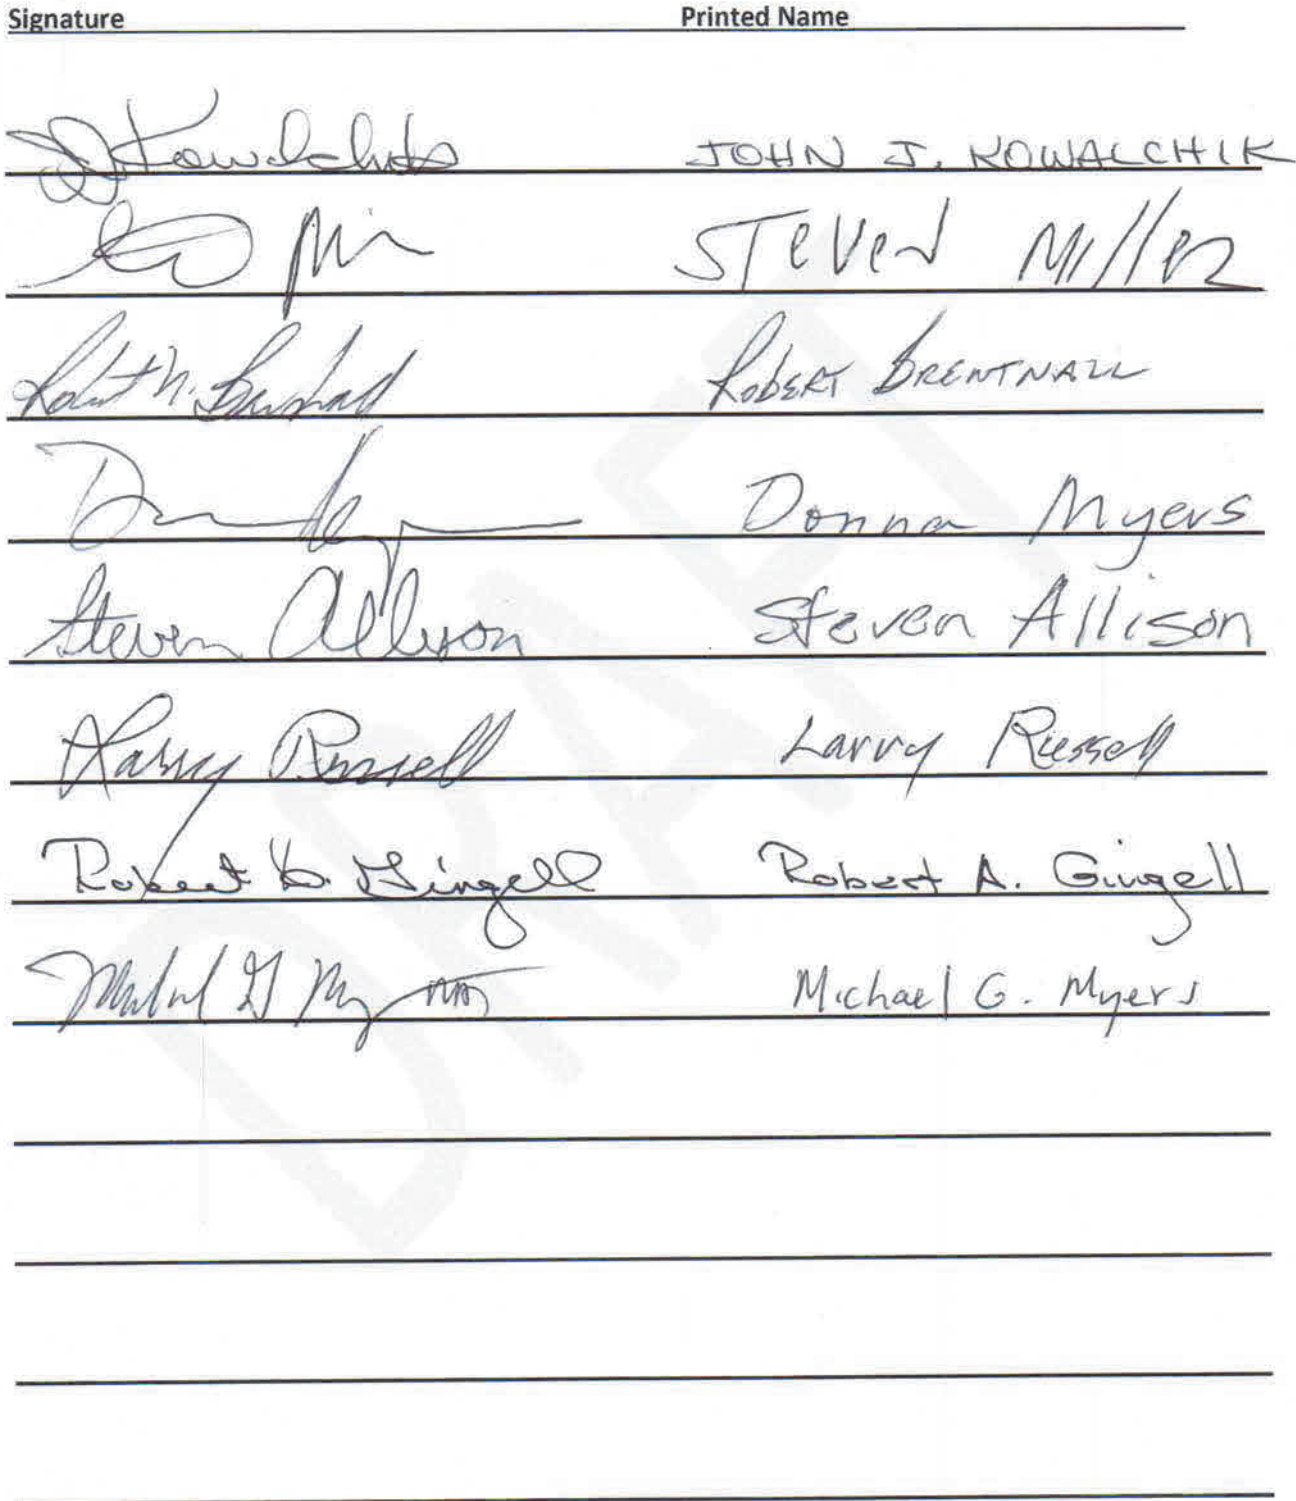 Signature Printed Name
J Kowalchik JOHN J. KOWALCHIK
STEVEN MILLER
Robert N. Brentnall ROBERT BRENTNALL
Donna Myers
Steven Allison Steven Allison
Larry Russell Larry Russell
Robert A. Gingell Robert A. Gingell
Michael G Myers Michael G. Myers
DRAFT